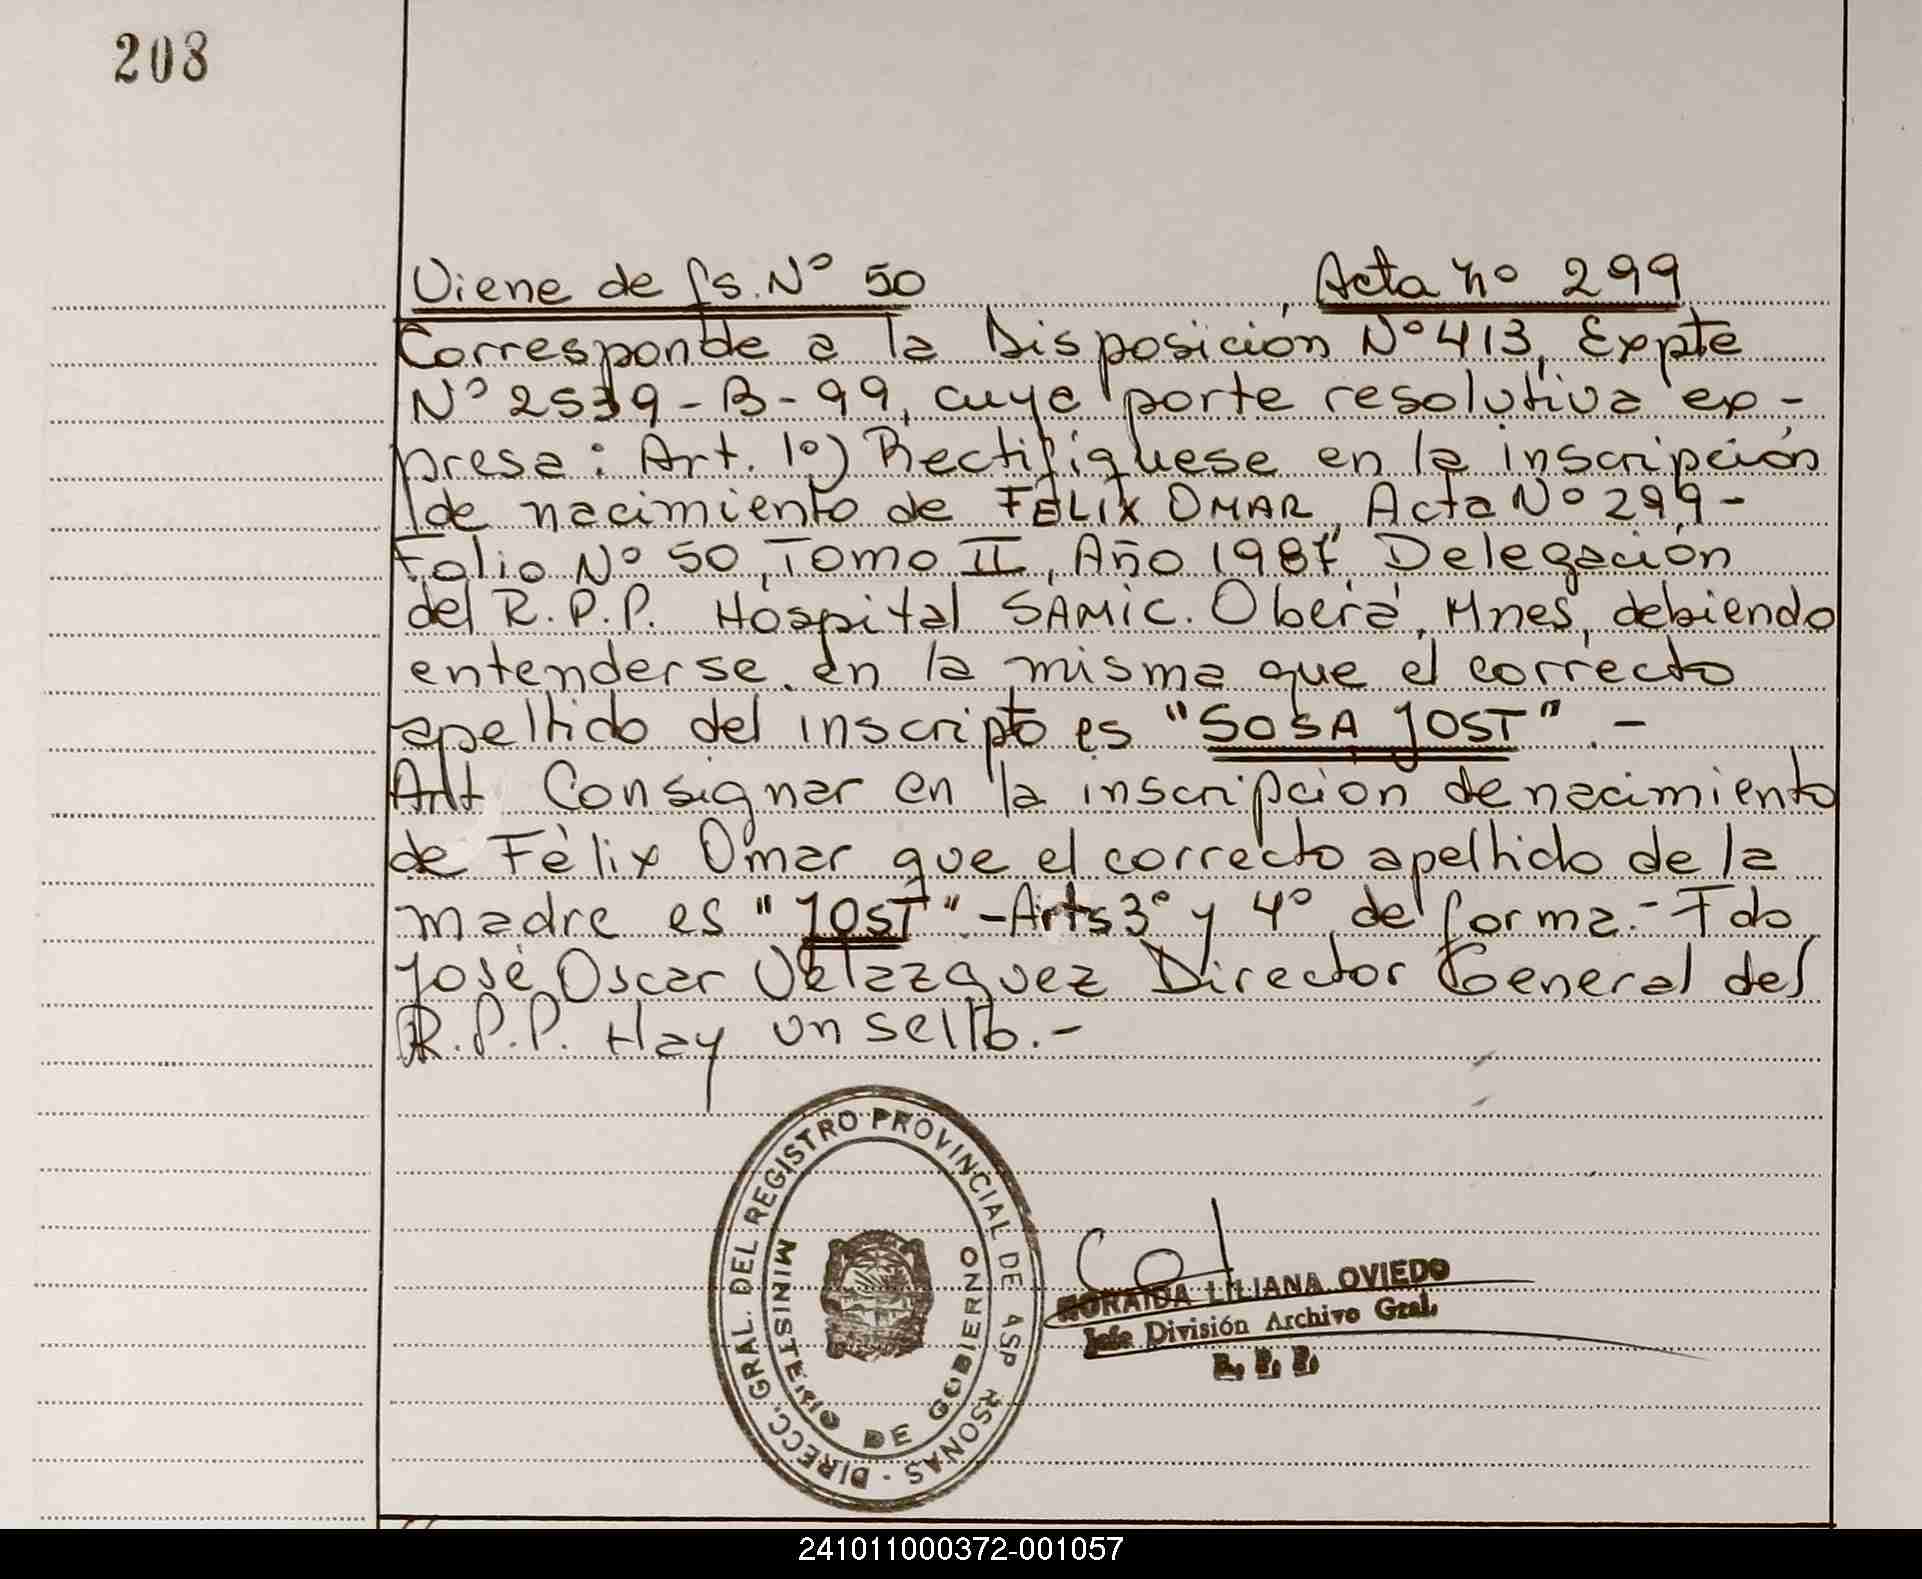 208
Viene de fs. Nº 50 Acta nº 299
Corresponde a la Disposición Nº 413, Expte
Nº 2539-B-99, cuya parte resolutiva ex-
presa: Art. 1º) Rectifíquese en la inscripción
de nacimiento de FÉLIX OMAR, Acta Nº 299-
Folio Nº 50, Tomo II, Año 1987, Delegación
del R.P.P. Hospital SAMIC. Oberá, Mnes, debiendo
entenderse en la misma que el correcto
apellido del inscripto es "SOSA JOST".-
Consignar en la inscripción de nacimiento
de Félix Omar que el correcto apellido de la
madre es "JOST".-Arts 3º y 4º de forma.-Fdo
José Oscar Velazzquez Director General del
R.P.P. Hay un sello.-
DIRECC. GRAL. DEL REGISTRO PROVINCIAL DE
MINISTERIO DE GOBIERNO
LILIANA OVIEDO
Jefe División Archivo Gral.
R. P. P.
241011000372-001057